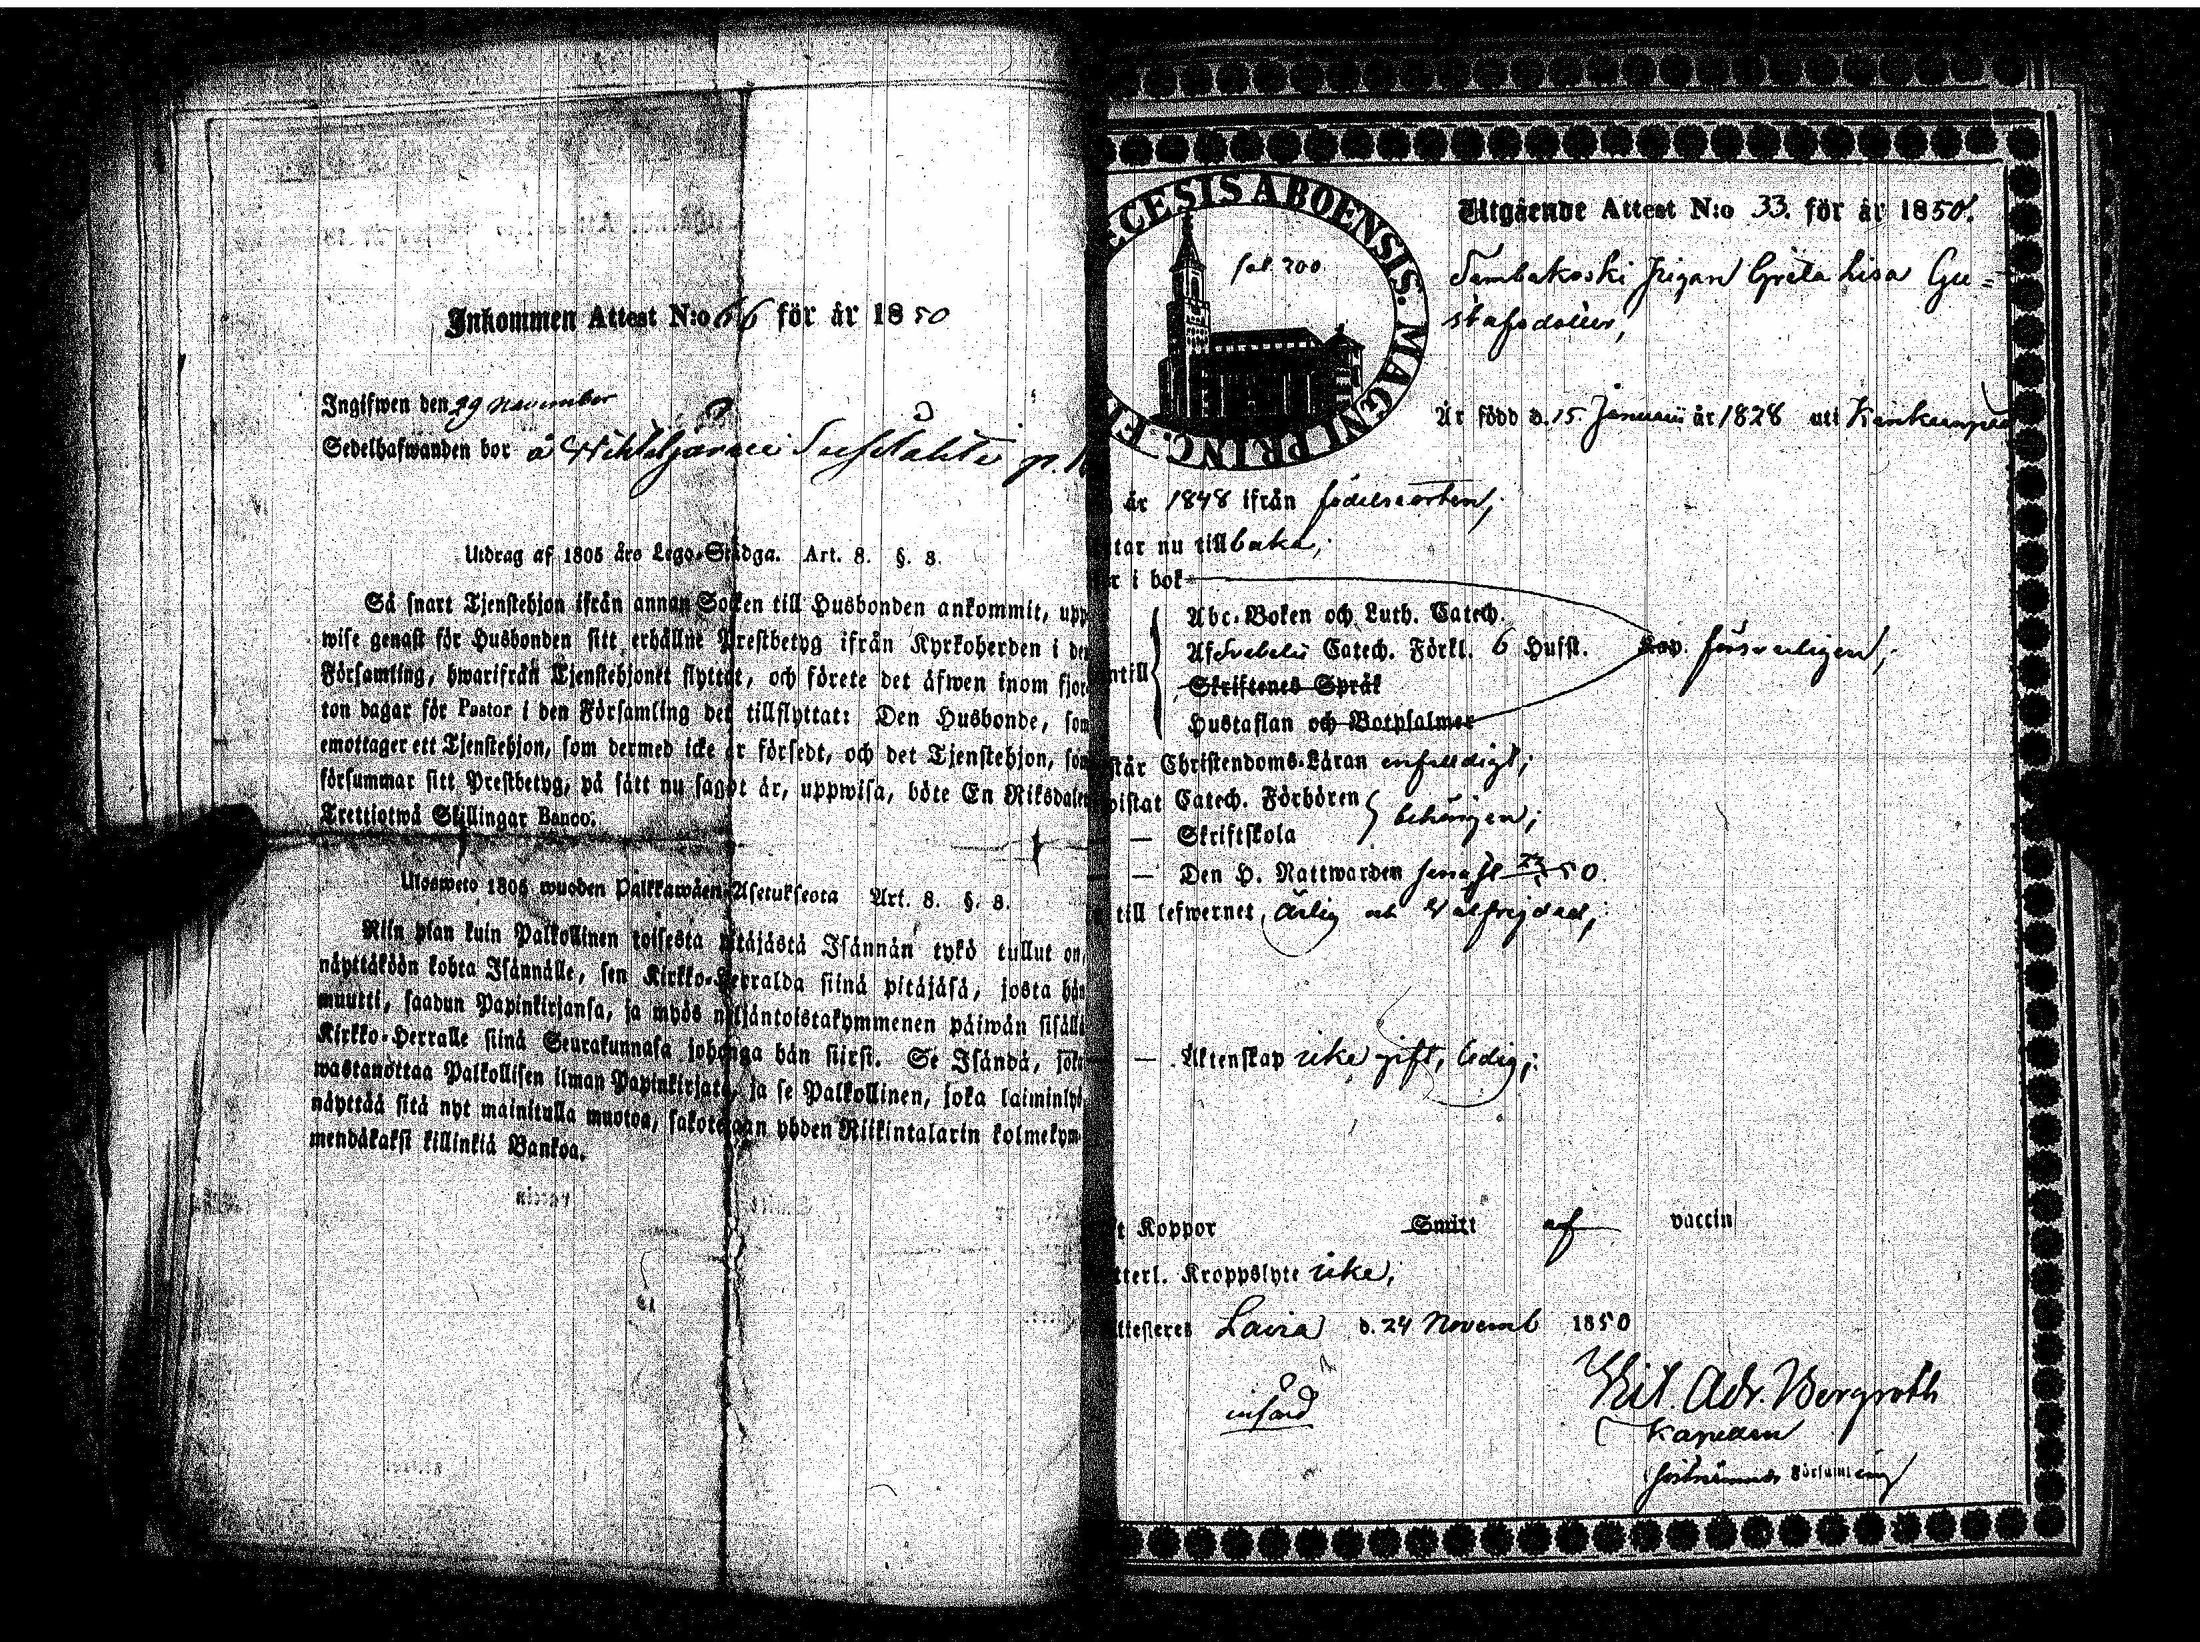 Inkommen Attest N:o 66 för år 1850
Ingifwen den 29 November
Sedelhafwanden bor å
Utdrag af 1805 års Lego-Stadga. Art. 8. §. 8.
Så snart Tjenstehjon ifrån annan Socken till Husbonden ankommit, upp
wise genast för Husbonden sitt erhållne Prestbetyg ifrån Kyrkoherden i den
Församling, hwarifrån Tjenstehjonet flyttat, och förete det äfwen inom fjor
ton dagar för Pastor i den Församling det tillflyttat: Den Husbonde, som
emottager ett Tjenstehjon, som dermed icke är försedt, och det Tjenstehjon, som
försummar sitt Prestbetyg, på sätt nu sagdt är, uppwisa, böte En Riksdaler
Trettiotwå Skillingar Banco.
Ulosweto 1805 wuoden Palkkawäen-Asetuksesta Art. 8. §. 8.
Niin pian kuin Palkollinen toisesta pitäjästä Isännän tykö tullut on,
näyttäköön kohta Isännälle, sen Kirkko-Herralda siinä pitäjäsä, josta hän
muutti, saadun Papinkirjansa, ja myös neljäntoistakymmenen päiwän sisällä
Kirkko-Herralle siinä Seurakunnasa johonga hän siirsi. Se Isändä, joka
wastanottaa Palkollisen ilman Papinkirjata, ja se Palkollinen, joka laiminlyö
näyttää sitä nyt mainitulla muotoa, sakotetaan yhden Riikintalarin kolmekym
mendäkaksi killinkiä Bankoa.
ECESIS ABOENSIS. MAGNI PRINC. F
fol 200
Utgående Attest N:o 33. för år 1850.
Piigan Greta Lisa Gu=
stafsdotter,
Är född d. 15 Januarii år 1828 uti
år 1848 ifrån födelseorten;
tar nu tillbaka;
i bok
Abc-Boken och Luth. Catech.
Af Svebelii Catech. Förkl. 6 Hufst. försvarligen;
ntill
Skriftenes Språk
Hustaflan och Botpsalmer
står Christendoms-Läran enfaldigt;
wistat Catech. Förhören
behörigen;
— Skriftskola
— Den H. Nattwarden 50.
till lefwernet, ärlig och välfrejdad;
— Äktenskap icke gift, ledig;
t Koppor Smitt af vaccin
tterl. Kroppslyte icke;
ttesteres Lavia d. 24 Novemb 1850
införd
Adr. Bergroth
Kapellan
Församling